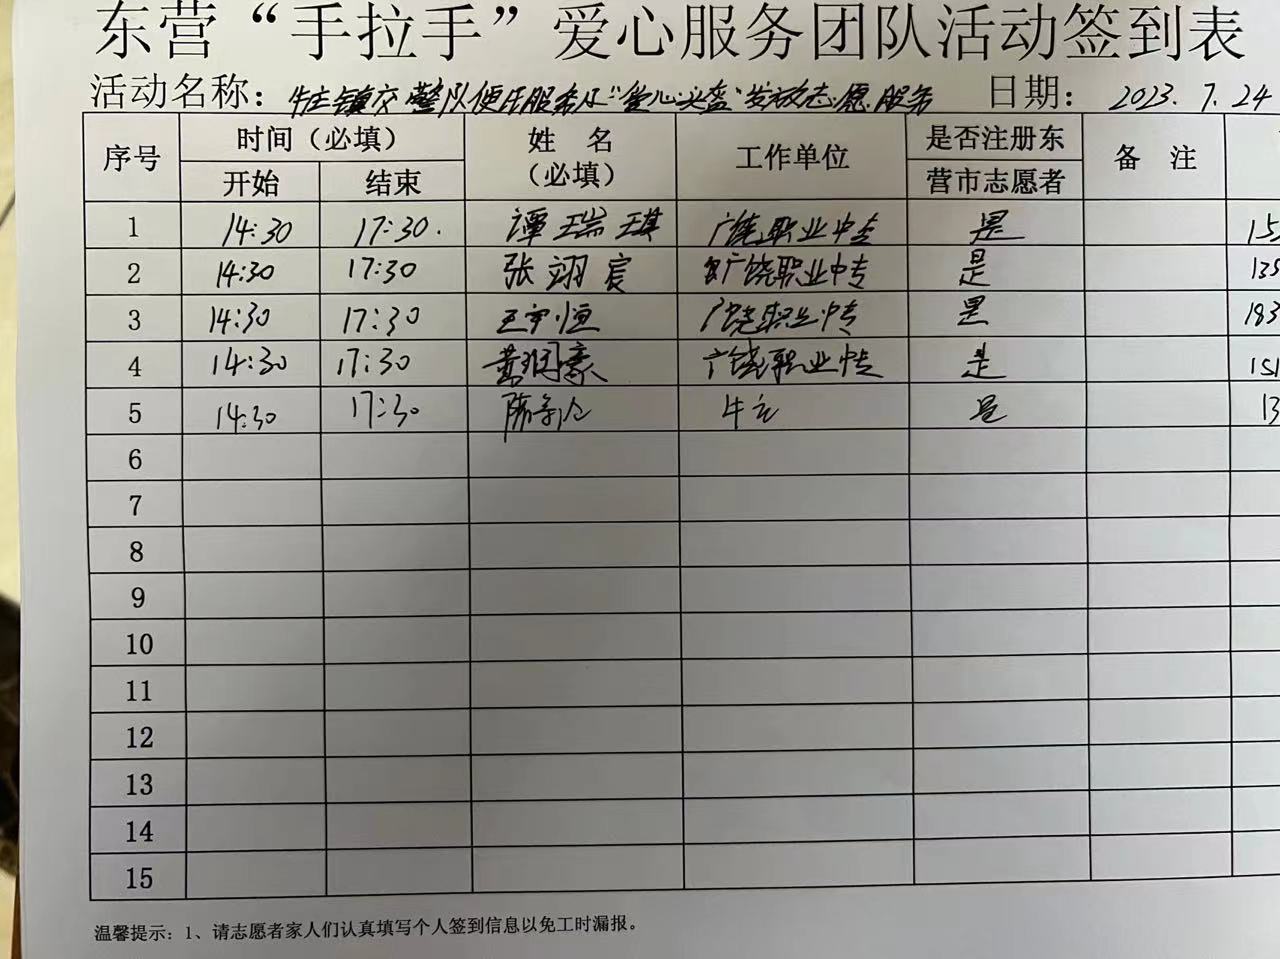 东营“手拉手”爱心服务团队活动签到表
活动名称：牛庄镇交警队便民服务及“爱心头盔”发放志愿服务 日期：2023.7.24
序号 时间（必填） 姓 名（必填） 工作单位 是否注册东营市志愿者 备 注
开始 结束
1 14:30 17:30. 谭瑞琪 广饶职业中专 是 15
2 14:30 17:30 张翊宸 广饶职业中专 是 135
3 14:30 17:30 王宇恒 广饶职业中专 是 183
4 14:30 17:30 黄润豪 广饶职业中专 是 151
5 14:30 17:30 陈 牛庄 是 13
6
7
8
9
10
11
12
13
14
15
温馨提示：1、请志愿者家人们认真填写个人签到信息以免工时漏报。